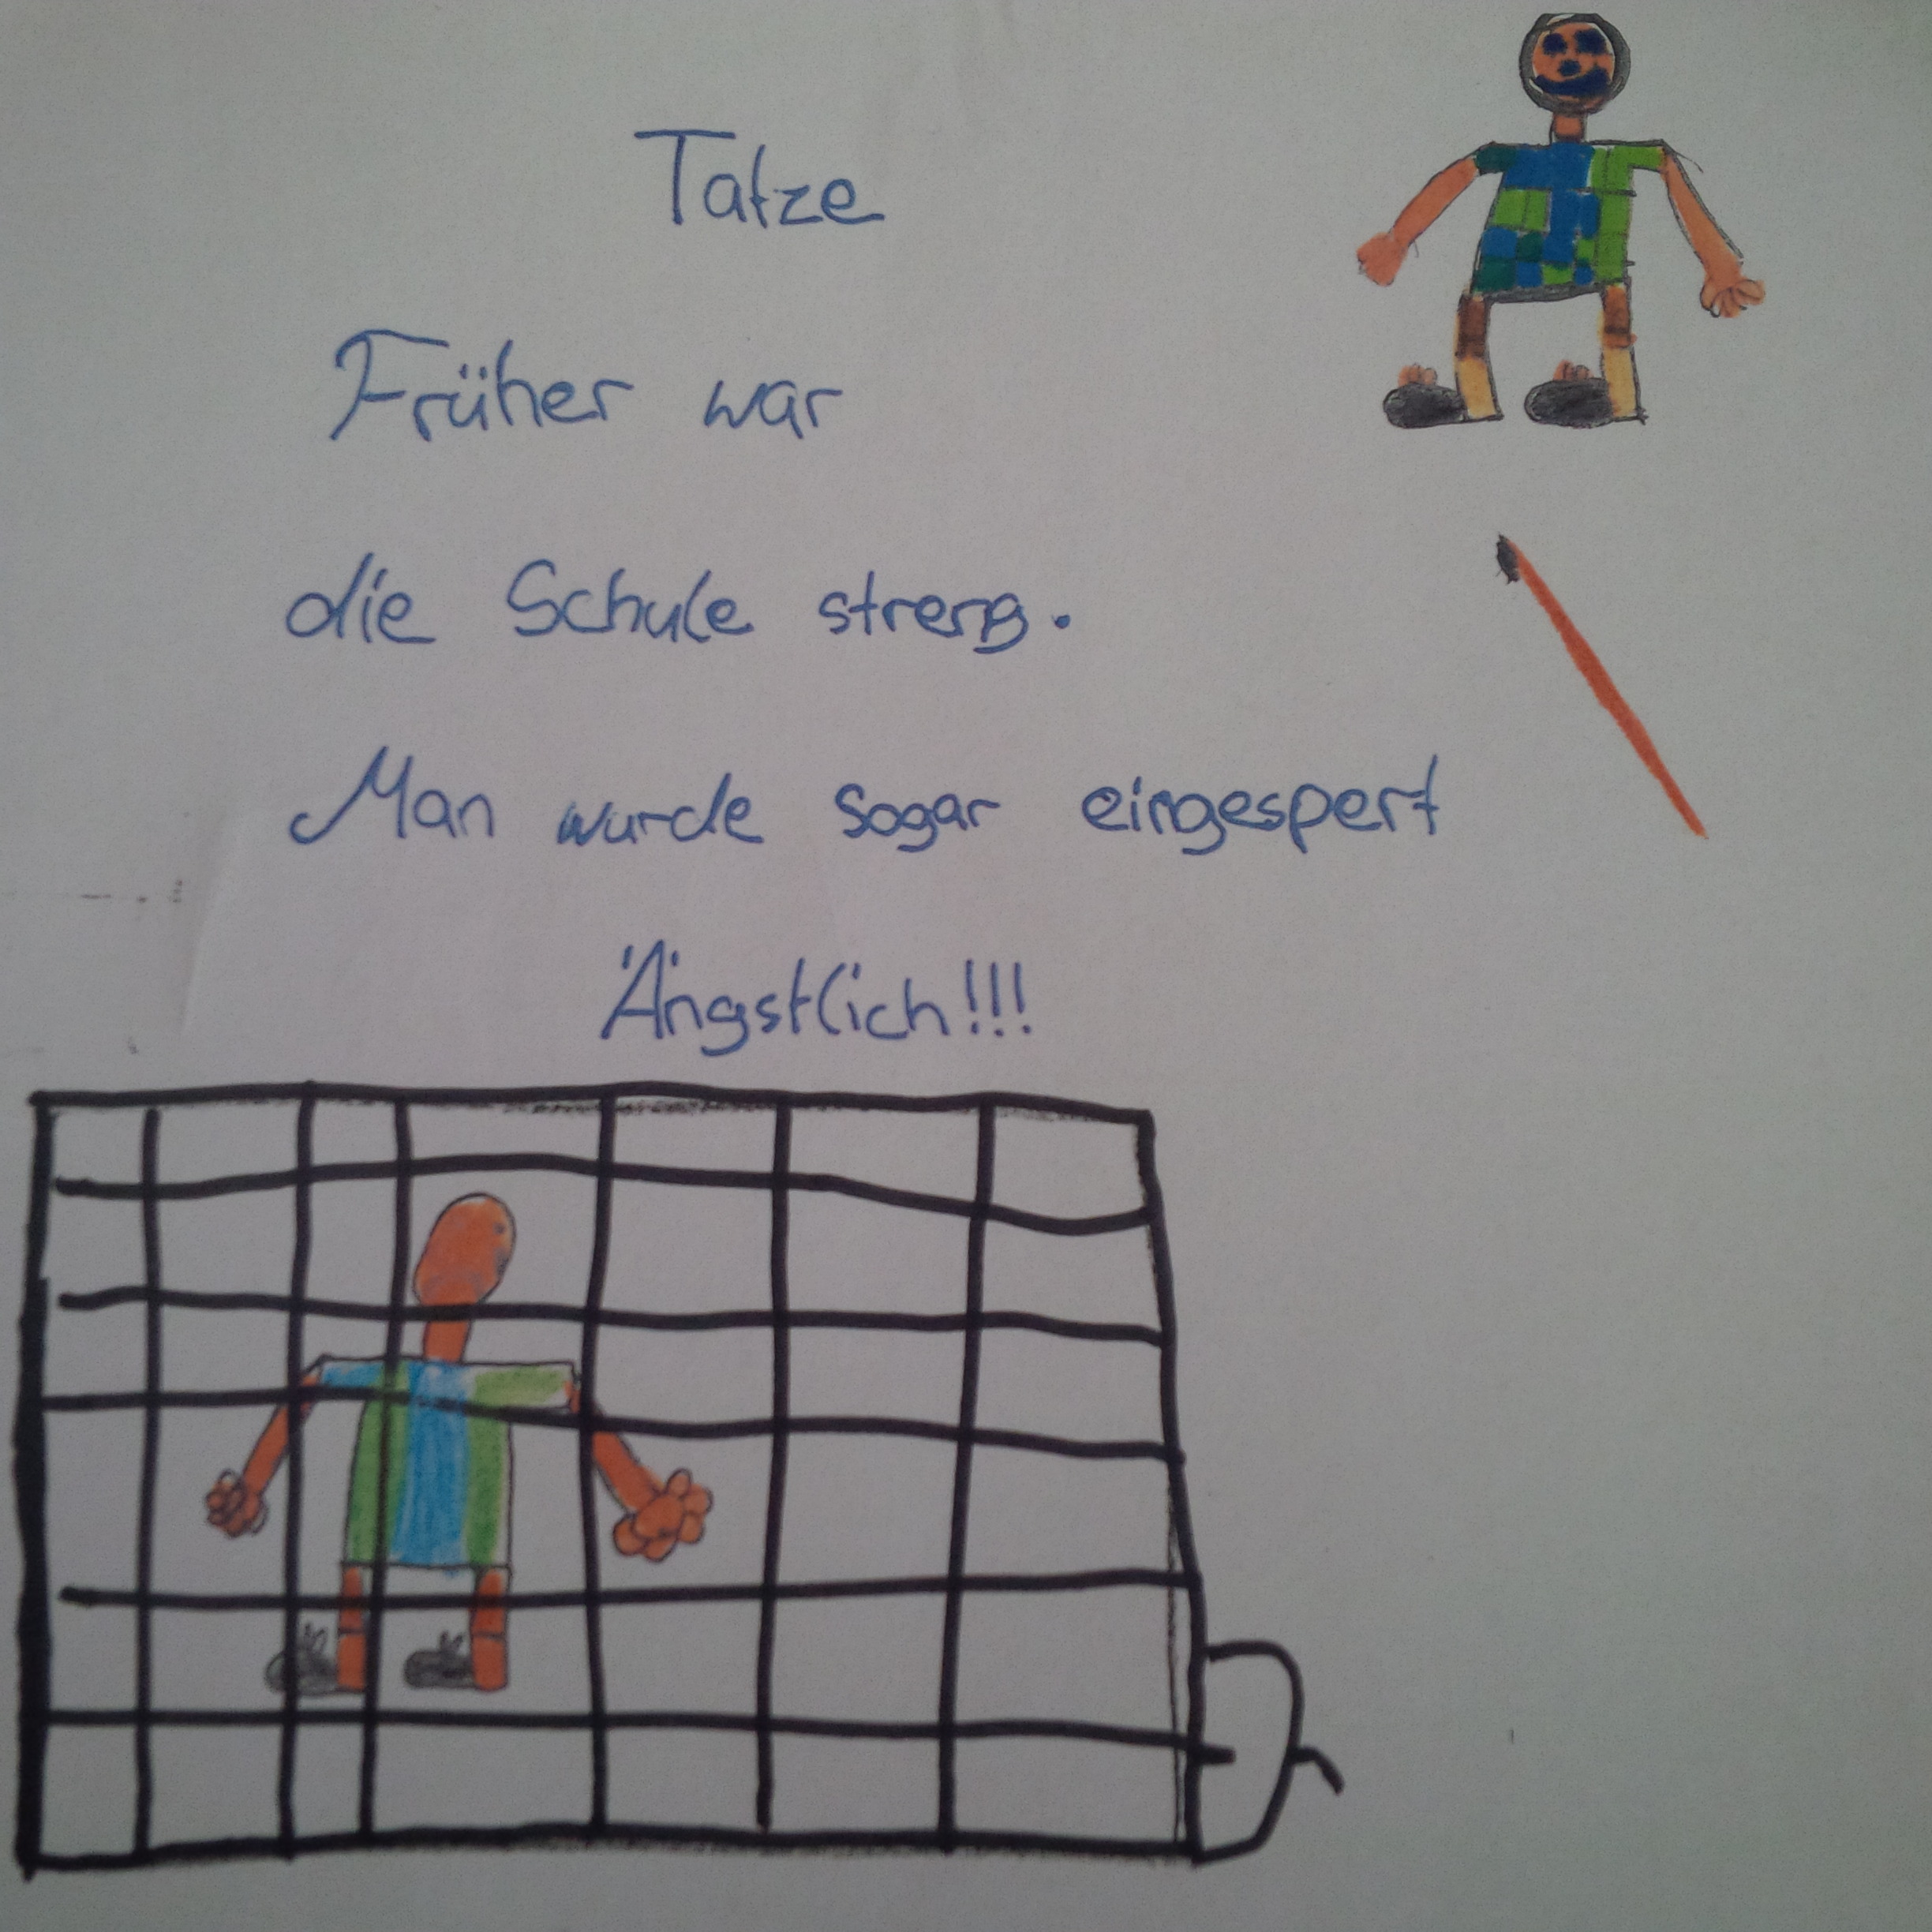 Tatze
Früher war
die Schule streng.
Man wurde sogar eingespert
Ängstlich!!!